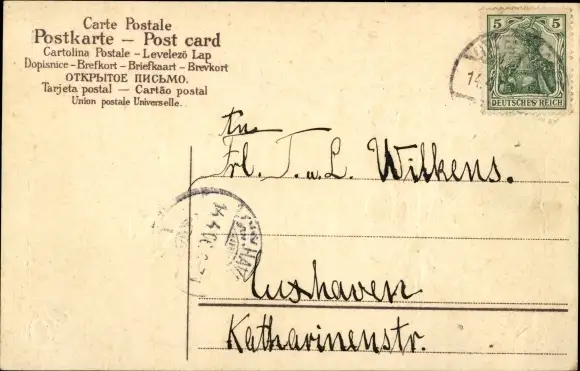 Carte Postale
Postkarte – Post card
Cartolina Postale – Levelező Lap
Dopisnice – Brefkort – Briefkaart – Brevkort
ОТКРЫТОЕ ПИСЬМО.
Tarjeta postal — Cartão postal
Union postale Universelle.
5 5
DEUTSCHES REICH
14.
An
Frl. T. u. L. Wilkens.
14.4.
HAV
Cuxhaven
Katharinenstr.